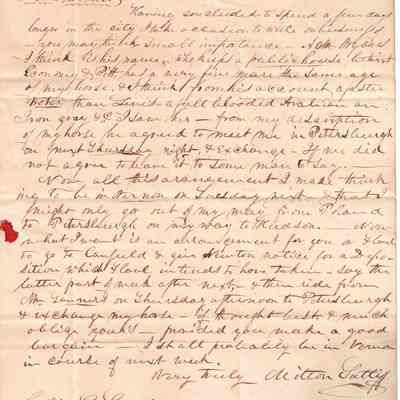 Having concluded to spend a few days
longer in the city I take occasion to write on business
you may think small importance – A Mr
I think is his name, who keeps a public house betwixt
Economy & Pitt has a very fine mare the same age
of my horse, & I think from his account a faster
trotter than Lewis a full blooded Arabian an
Iron gray & I saw her – from my description
of my horse he agreed to meet me in Petersburgh
on next Thursday night, & Exchange – If we did
not agree to leave it to some man to say. –
Now all this arrangement I made think
ing to be in Vernon on Tuesday next – so that I
might only go out of my way from Poland
to Petersburgh on my way to Hudson. – Now
what I want is an arrangement for you & Clark
to go to Canfield & give Newton notice for a Depo
sition which Clark intends to have taken – say the
latter part of week after next – & then ride from
Mr on Thursday afternoon to Petersburgh
& exchange my horse – if thought best & much
oblige yours – provided you make a good
bargain – I shall probably be in Vernon
in course of next week.
Very truly Milton Sutliff